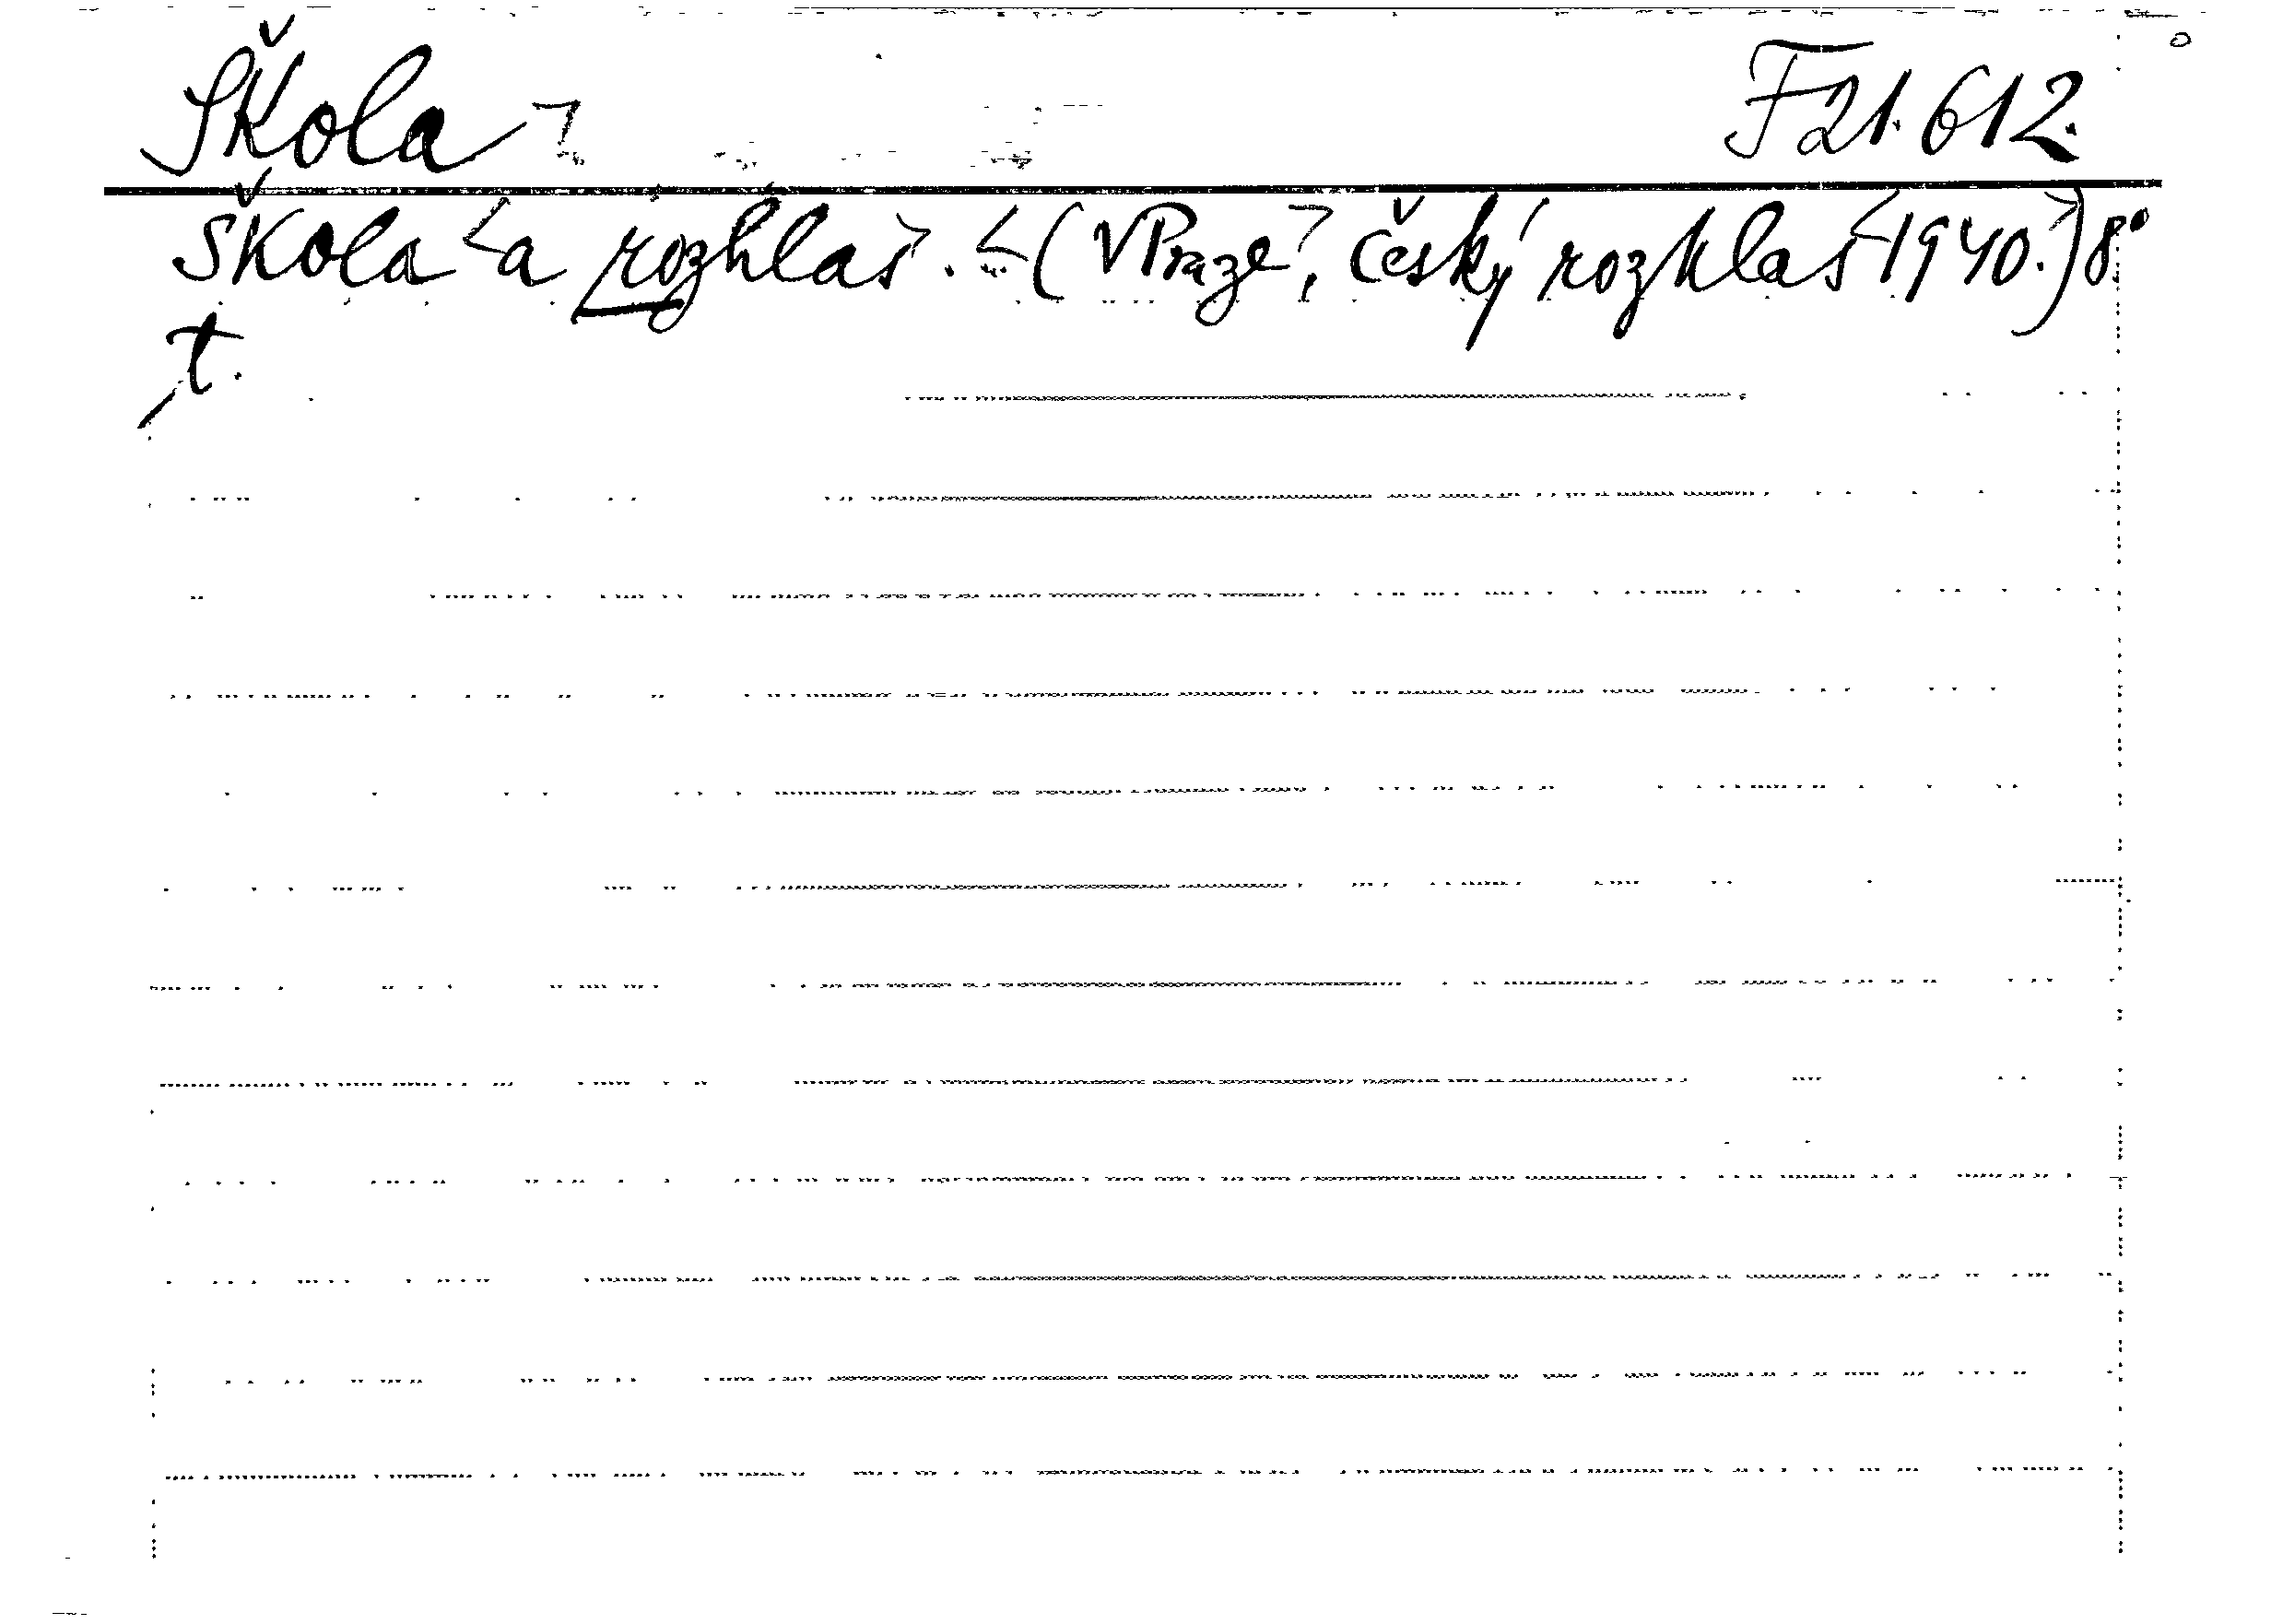 Škola ⌝ F 21.612.
Škola ∠a rozhlas⌝. ∠(V Praze⌝, Český rozhlas ∠1940.⌝) 8°.
t.